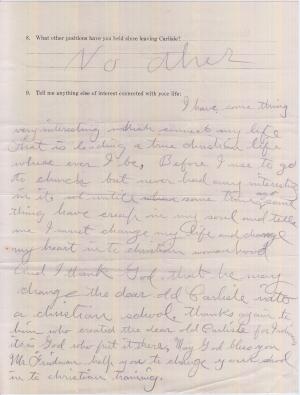 8. What other positions have you held since leaving Carlisle?
No other
9. Tell me anything else of interest connected with your life:
I have some thing
very interesting which connect my life
that is leading a true christian life
whose ever I be, Before I use to go
to church but never had any interesting
in it, not until some time ago some
thing have creap in my soul and tells
me I must change my life and change
my heart in to christian womanhood
and I thank God, that he may
change the dear old Carlisle into
a christian school, thanks again to
him who created the dear old Carlisle for
its is God who put it there, May God bless you
Mr. Friedman help you to change your school
in to christian training.